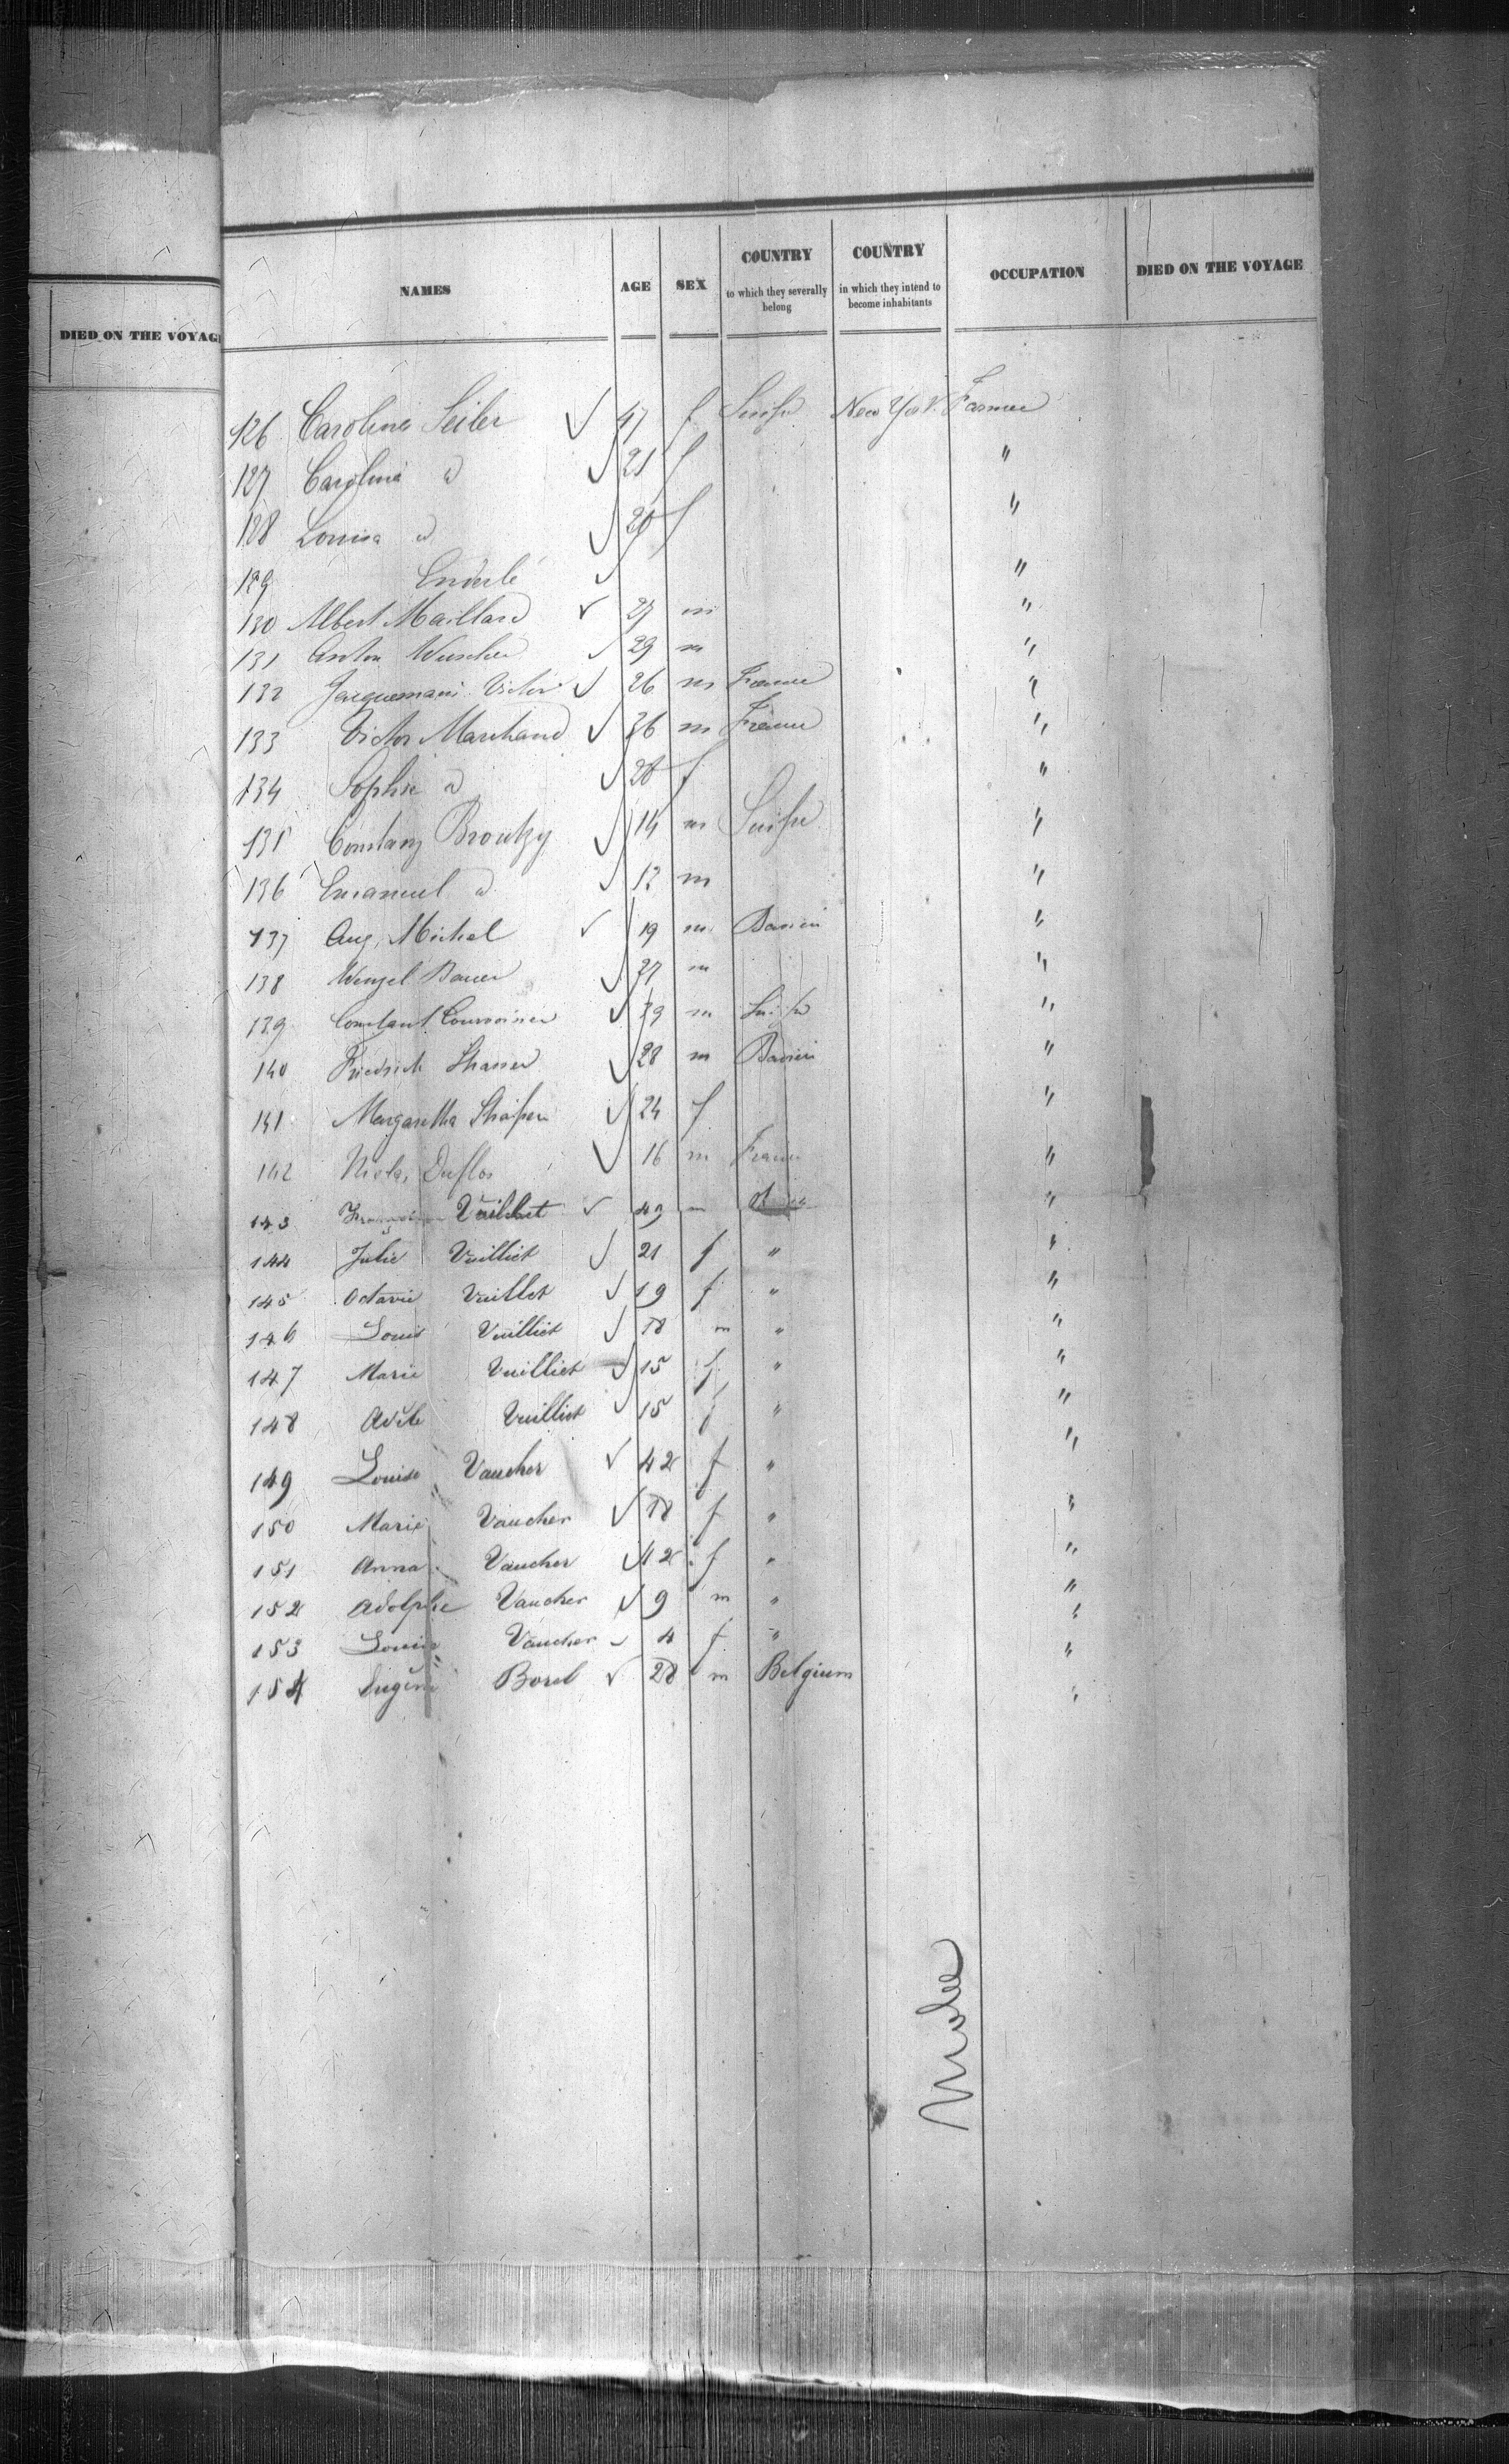 DIED ON THE VOYAGE
NAMES AGE SEX COUNTRY to which they severally belong COUNTRY in which they intend to become inhabitants OCCUPATION DIED ON THE VOYAGE
126 Caroline Seiler 47 f Suisse New York Farmer
127 Carolina d 21 f "
128 Louisa d 20 f "
129 Enderlé "
130 Albert Maillard 27 m "
131 Anton Wuscher 29 m "
132 Jacquemain Victor 26 m France "
133 Victor Marchand 36 m France "
134 Sophie d 28 f "
135 Constanz Broutzy 14 m Suisse "
136 Emanuel d 12 m "
137 Aug. Michel 19 m Bavier "
138 Wenzel Bauer 27 m "
139 Constant Courvoisier 39 m Suisse "
140 Friedrich 28 m Bavier "
141 Margaretha 24 f "
142 Nicolas Duflos 16 m France "
143 Vuilliet 49 m "
144 Julie Vuilliet 21 f " "
145 Octavie Vuilliet 19 f " "
146 Louis Vuilliet 18 m " "
147 Marie Vuilliet 15 f " "
148 Adèle Vuilliet 15 f " "
149 Louise Vaucher 42 f " "
150 Marie Vaucher 18 f " "
151 Anna Vaucher 12 f " "
152 Adolphe Vaucher 9 m " "
153 Louise Vaucher 4 f " "
154 Eugène Borel 28 m Belgium "